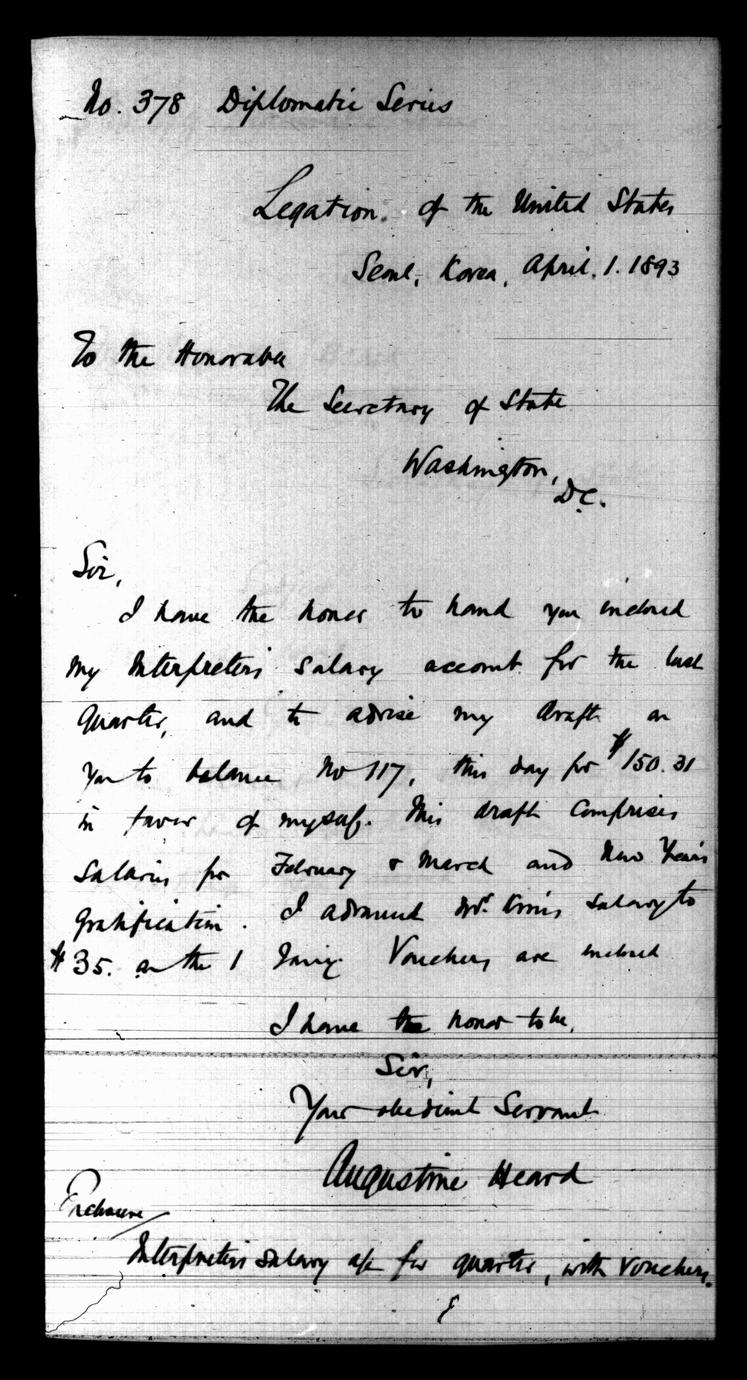 No. 378 Diplomatic Series
Legation of the United States
Seoul, Korea, April. 1. 1893
To the Honorable
The Secretary of State
Washington,
D.C.
Sir,
I have the honor to hand you inclosed
my Interpreter's salary account for the last
Quarter, and to advise my draft on
you to balance No 117, this day for $150.31
in favor of myself. This draft comprises
Salaries for February & March and New Year's
gratification. I advanced Mr. Kim's salary to
$35. on the 1 Vouchers are inclosed
I have the honor to be,
Sir,
Your obedient Servant
Augustine Heard
Enclosure
Interpreter's salary a/c for quarter, with vouchers.